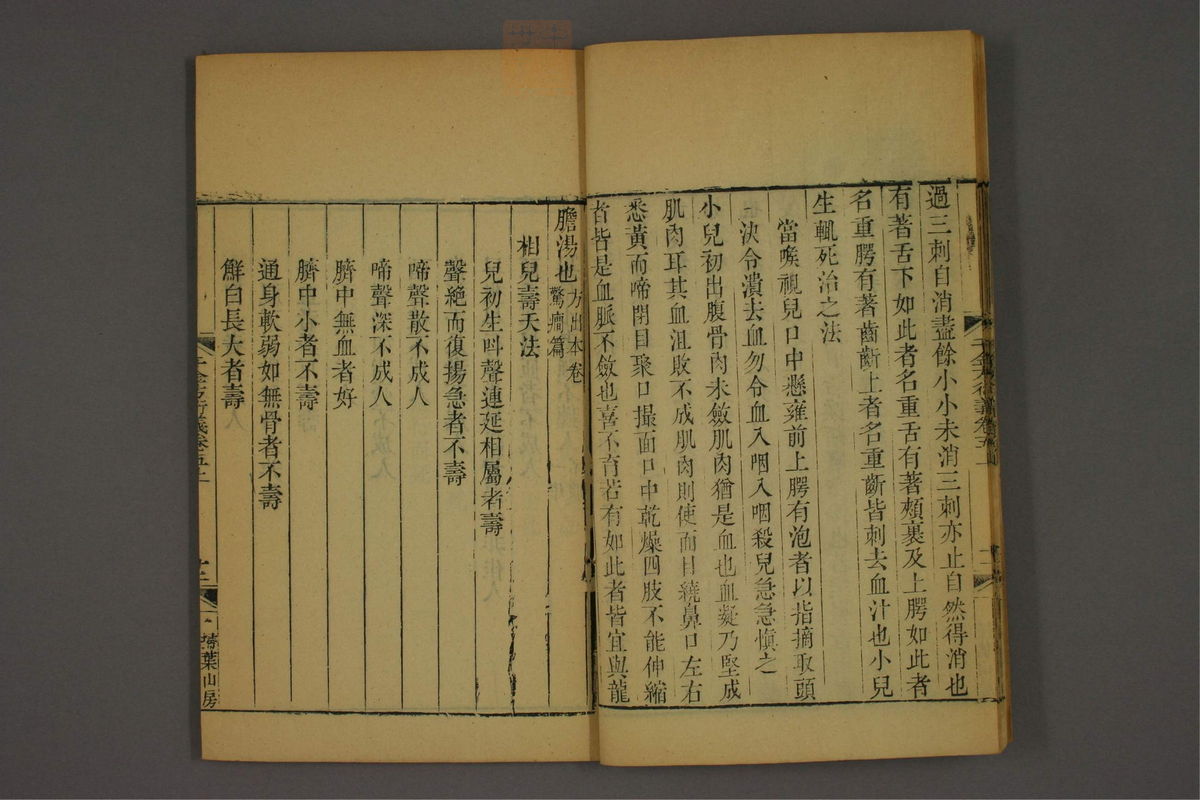 過三刺自消盡餘小小未消三刺亦止自然得消也
有著舌下如此者名重舌有著頰裏及上腭如此者
名重腭有著齒齗上者名重齗皆刺去血汁也小兒
生輒死治之法
當喉視兒口中懸雍前上腭有泡者以指摘取頭
決令潰去血勿令血入咽入咽殺兒急急慎之
小兒初出腹骨肉未斂肌肉猶是血也血凝乃堅成
肌肉耳其血沮敗不成肌肉則使面目繞鼻口左右
悉黃而啼閉目聚口撮面口中乾燥四肢不能伸縮
者皆是血脈不斂也喜不育若有如此者皆宜與龍
膽湯也方出本卷
驚癇篇
相兒壽夭法
兒初生叫聲連延相屬者壽
聲絶而復揚急者不壽
啼聲散不成人
啼聲深不成人
臍中無血者好
臍中小者不壽
通身軟弱如無骨者不壽
鮮白長大者壽
千金方衍義卷五上
十二
掃葉山房